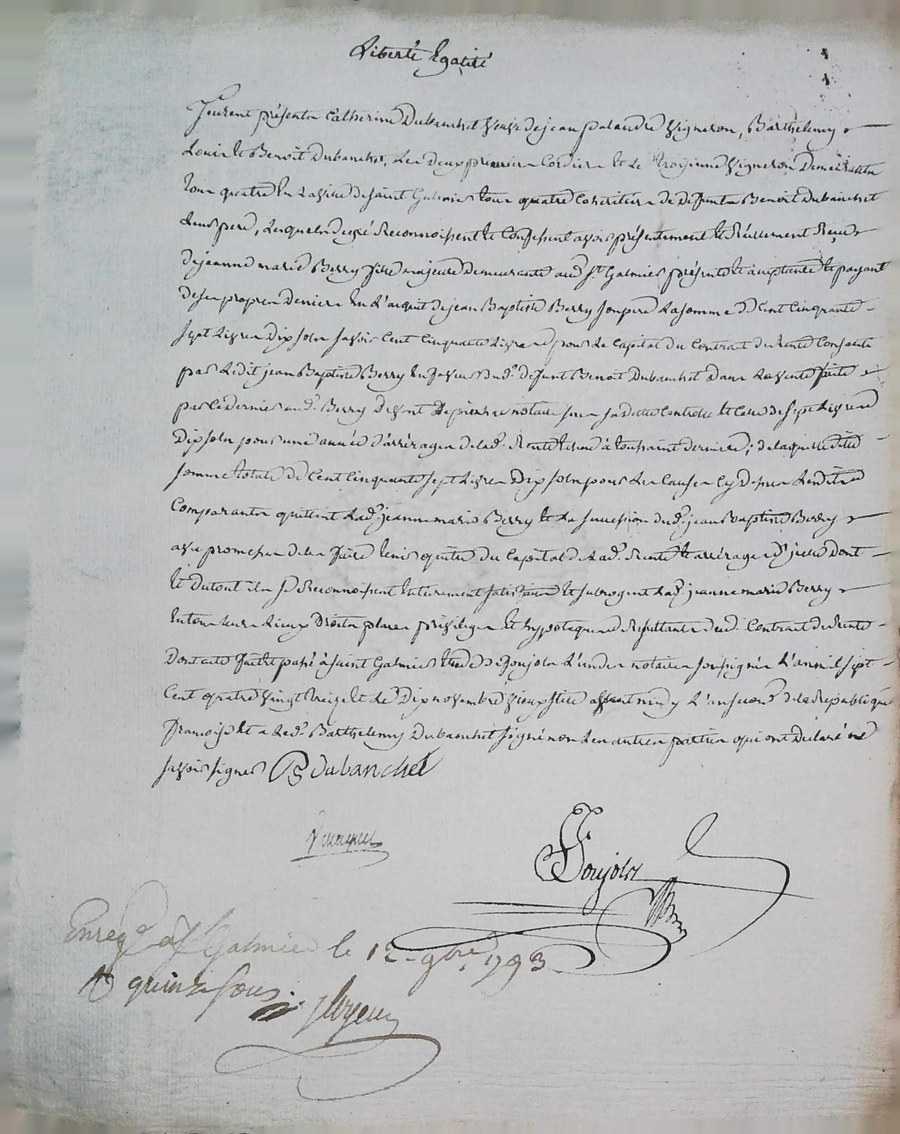 Liberté Egalité
Furent présents Catherine Dubanchet veuve de jean palandre vigneron, Barthelemy
Louis et Benoit Dubanchet, les deux premiers Cordiers et le troizieme vigneron Demeurants
tous quatre en la ville de Saint Galmier tous quatre Coheritiers de Defunt Benoit Dubanchet
leur pere, lesquels de gré Reconnoissent et Confessent avoir présentement et Réellement Reçu
de jeanne marie Berry fille majeure Demeurante aud. St Galmier présente et acceptante et payant
de ses propres Deniers En L'acquit de jean Baptiste Berry son pere La somme de Cent Cinquante
sept Livres Dix sols savoir Cent Cinquante Livres pour Le Capital du Contrat de Rente Consentie
par Ledit jean Baptiste Berry En faveur dud. defunt Benoit Dubanchet Dans La vente faite
par Ce Dernier aud. Berry Devant notaire sous sa datte Controllé et Celle de sept Livres
Dix sols pour une année d'arrérages de lad. Rente Echue à toussaint dernier; de laquelle ditte
somme totale de Cent Cinquante sept Livres Dix sols pour Les Causes Cy Dessus Lesdits
Comparants quittent Lad. jeanne marie Berry et La succession dud. jean Baptiste Berry
avec promesse de les faire tenir quittes du Capital de Lad. Rente et arrérages d'jcelle Dont
et Du tout ils se Reconnoissent Entierement satisfaits et subrogent Lad. jeanne marie Berry
En tous Leurs Lieux Droits places privileges et hypoteques Resultants dud. Contrat de Rente
Dont acte fait et passé à Saint Galmier Etude de Goujolx L'un des notaires soussignés L'an mil sept
Cent quatre vingt treize et Le Dix novembre vieux stile avant midy L'an second de la Republique
françoise et a Led. Barthelemy Dubanchet signé non Les autres parties qui ont Déclaré ne
savoir signer B Dubanchet
Goujolx
Enregé a St Galmier le 12 9bre 1793
R quinze sous